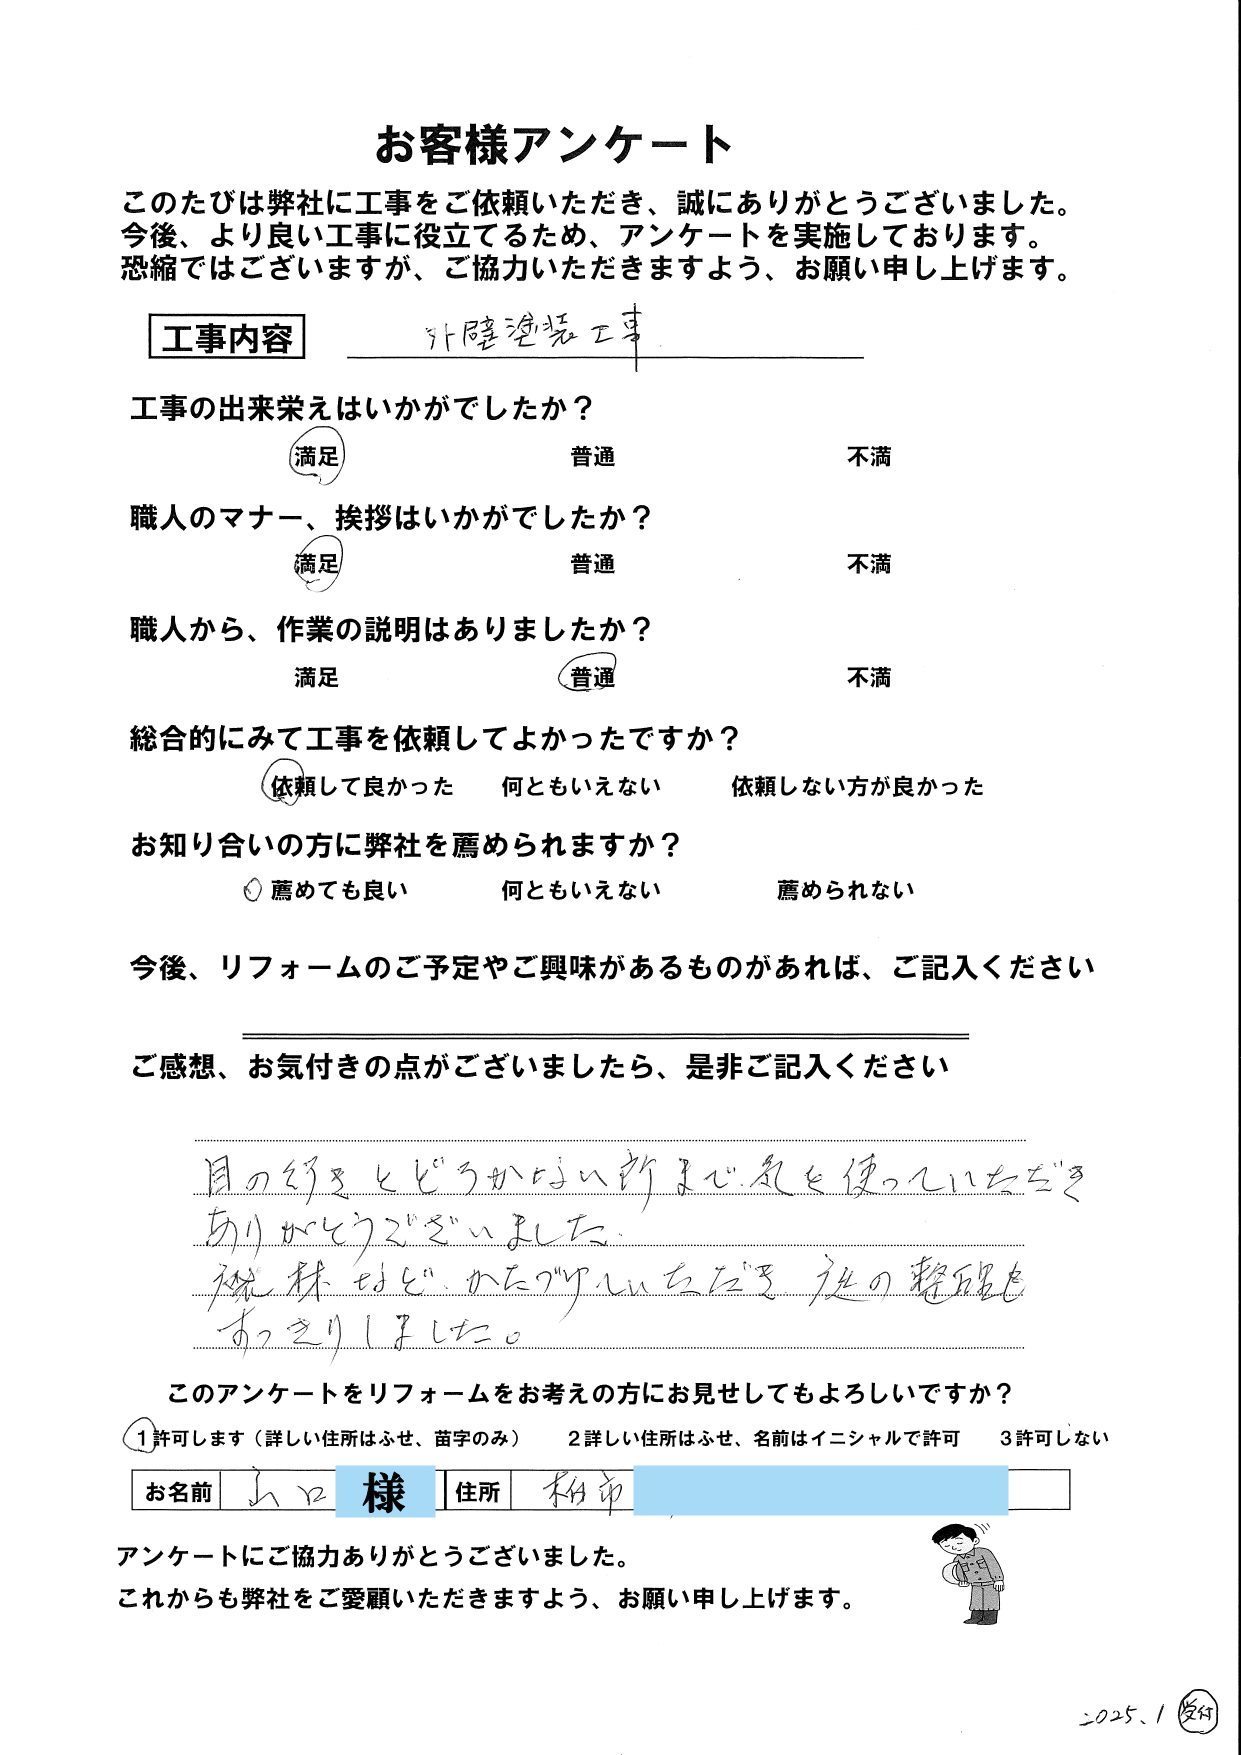 お客様アンケート
このたびは弊社に工事をご依頼いただき、誠にありがとうございました。
今後、より良い工事に役立てるため、アンケートを実施しております。
恐縮ではございますが、ご協力いただきますよう、お願い申し上げます。
工事内容 外壁塗装工事
工事の出来栄えはいかがでしたか？
満足 普通 不満
職人のマナー、挨拶はいかがでしたか？
満足 普通 不満
職人から、作業の説明はありましたか？
満足 普通 不満
総合的にみて工事を依頼してよかったですか？
依頼して良かった 何ともいえない 依頼しない方が良かった
お知り合いの方に弊社を薦められますか？
薦めても良い 何ともいえない 薦められない
今後、リフォームのご予定やご興味があるものがあれば、ご記入ください
ご感想、お気付きの点がございましたら、是非ご記入ください
目の行きとどうかない所まで、気を使っていただき
ありがとうございました。
など、かたづけしいただき 庭の整理も
すっきりしました。
このアンケートをリフォームをお考えの方にお見せしてもよろしいですか？
1許可します（詳しい住所はふせ、苗字のみ） 2詳しい住所はふせ、名前はイニシャルで許可 3許可しない
お名前 山口 様 住所 柏市
アンケートにご協力ありがとうございました。
これからも弊社をご愛顧いただきますよう、お願い申し上げます。
2025.1 受付